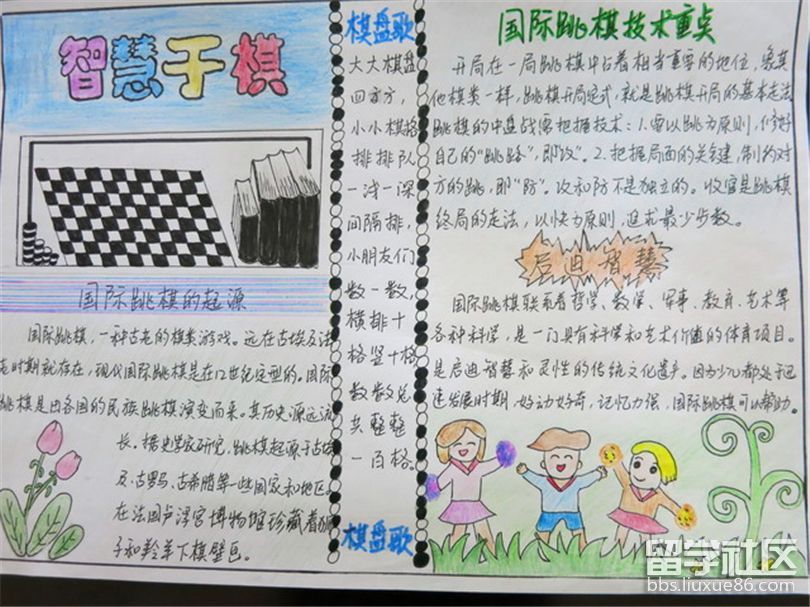 智慧于棋
国际跳棋的起源
国际跳棋,一种古老的棋类游戏。远在古埃及法
老时期就存在,现代国际跳棋是在12世纪定型的。国际
跳棋是由各国的民族跳棋演变而来。其历史源远流
长。据史学家研究,跳棋起源于古埃
及、古罗马、古希腊等一些国家和地区。
在法国卢浮宫博物馆珍藏着
子和羚羊下棋壁画。
棋盘歌
大大棋盘
四方方,
小小棋格
排排队
一浅一深
间隔排,
小朋友们
数一数,
横排十
格竖十格
数数总
共整整
一百格。
棋盘歌
国际跳棋技术重点
开局在一局跳棋中占着相当重要的地位,象其
他棋类一样,跳棋开局定式,就是跳棋开局的基本走法
跳棋的中盘战需把握技术:1.要以跳为原则,修好
自己的“跳路”,即“攻”。2.把握局面的关键,制约对
方的跳,即“防”。攻和防不是独立的。收官是跳棋
终局的走法,以快为原则,追求最少步数。
启迪智慧
国际跳棋联系着哲学、数学、军事、教育、艺术等
各种科学,是一门具有科学和艺术价值的体育项目。
是启迪智慧和灵性的传统文化遗产。因为少儿都处于迅
速发展时期,好动好奇,记忆力强,国际跳棋可以帮助。
留学社区
bbs.liuxue86.com